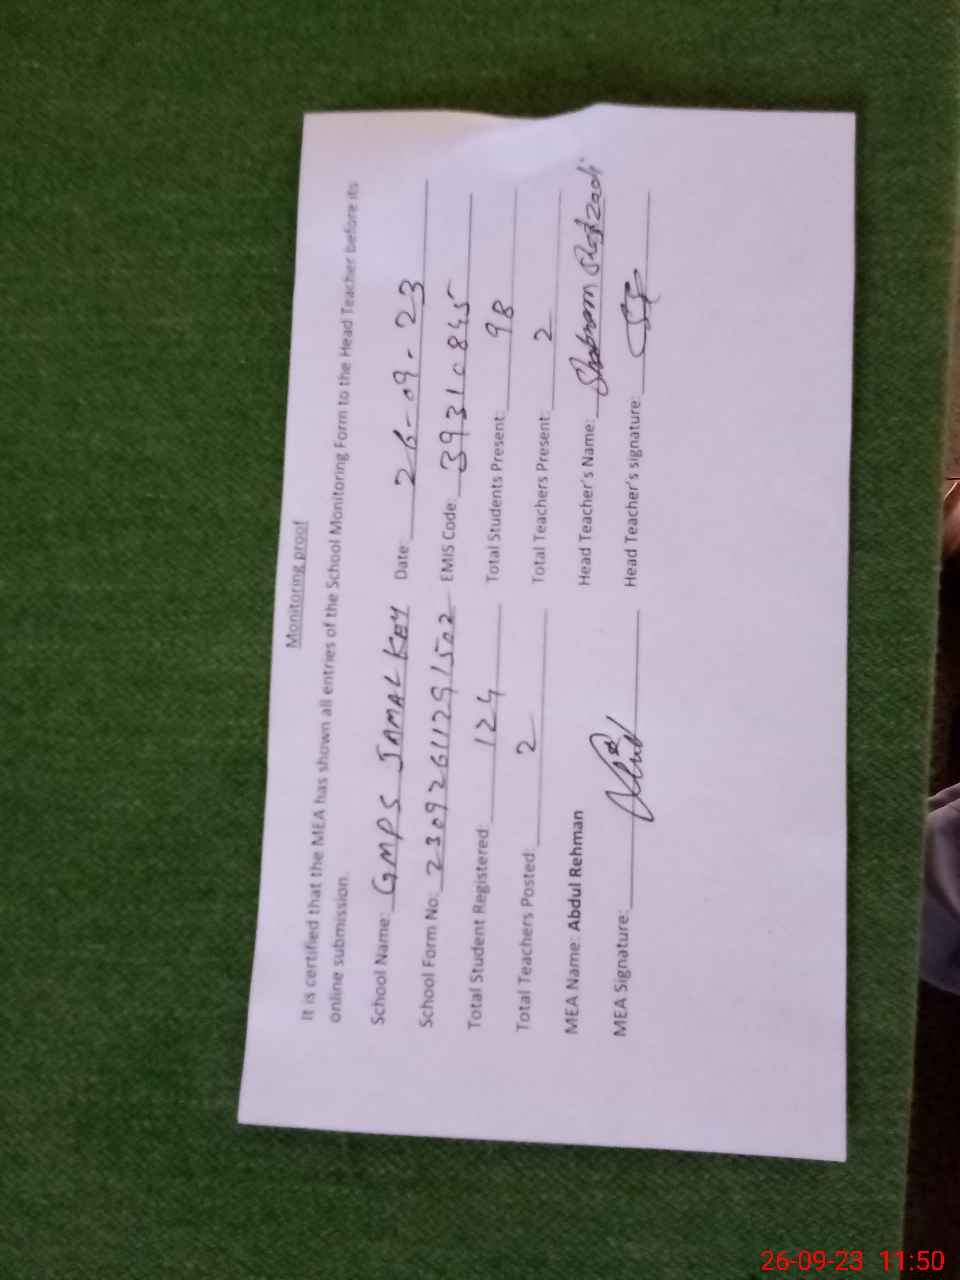 Monitoring proof
It is certified that the MEA has shown all entries of the School Monitoring Form to the Head Teacher before its
online submission.
School Name: GMPS JAMAL KEY Date: 26-09-23
School Form No: 23092611291502 EMIS Code: 39310845
Total Student Registered: 124 Total Students Present: 98
Total Teachers Posted: 2 Total Teachers Present: 2
MEA Name: Abdul Rehman Head Teacher's Name: Shabnam Shahzadi
MEA Signature: Head Teacher's signature:
26-09-23 11:50